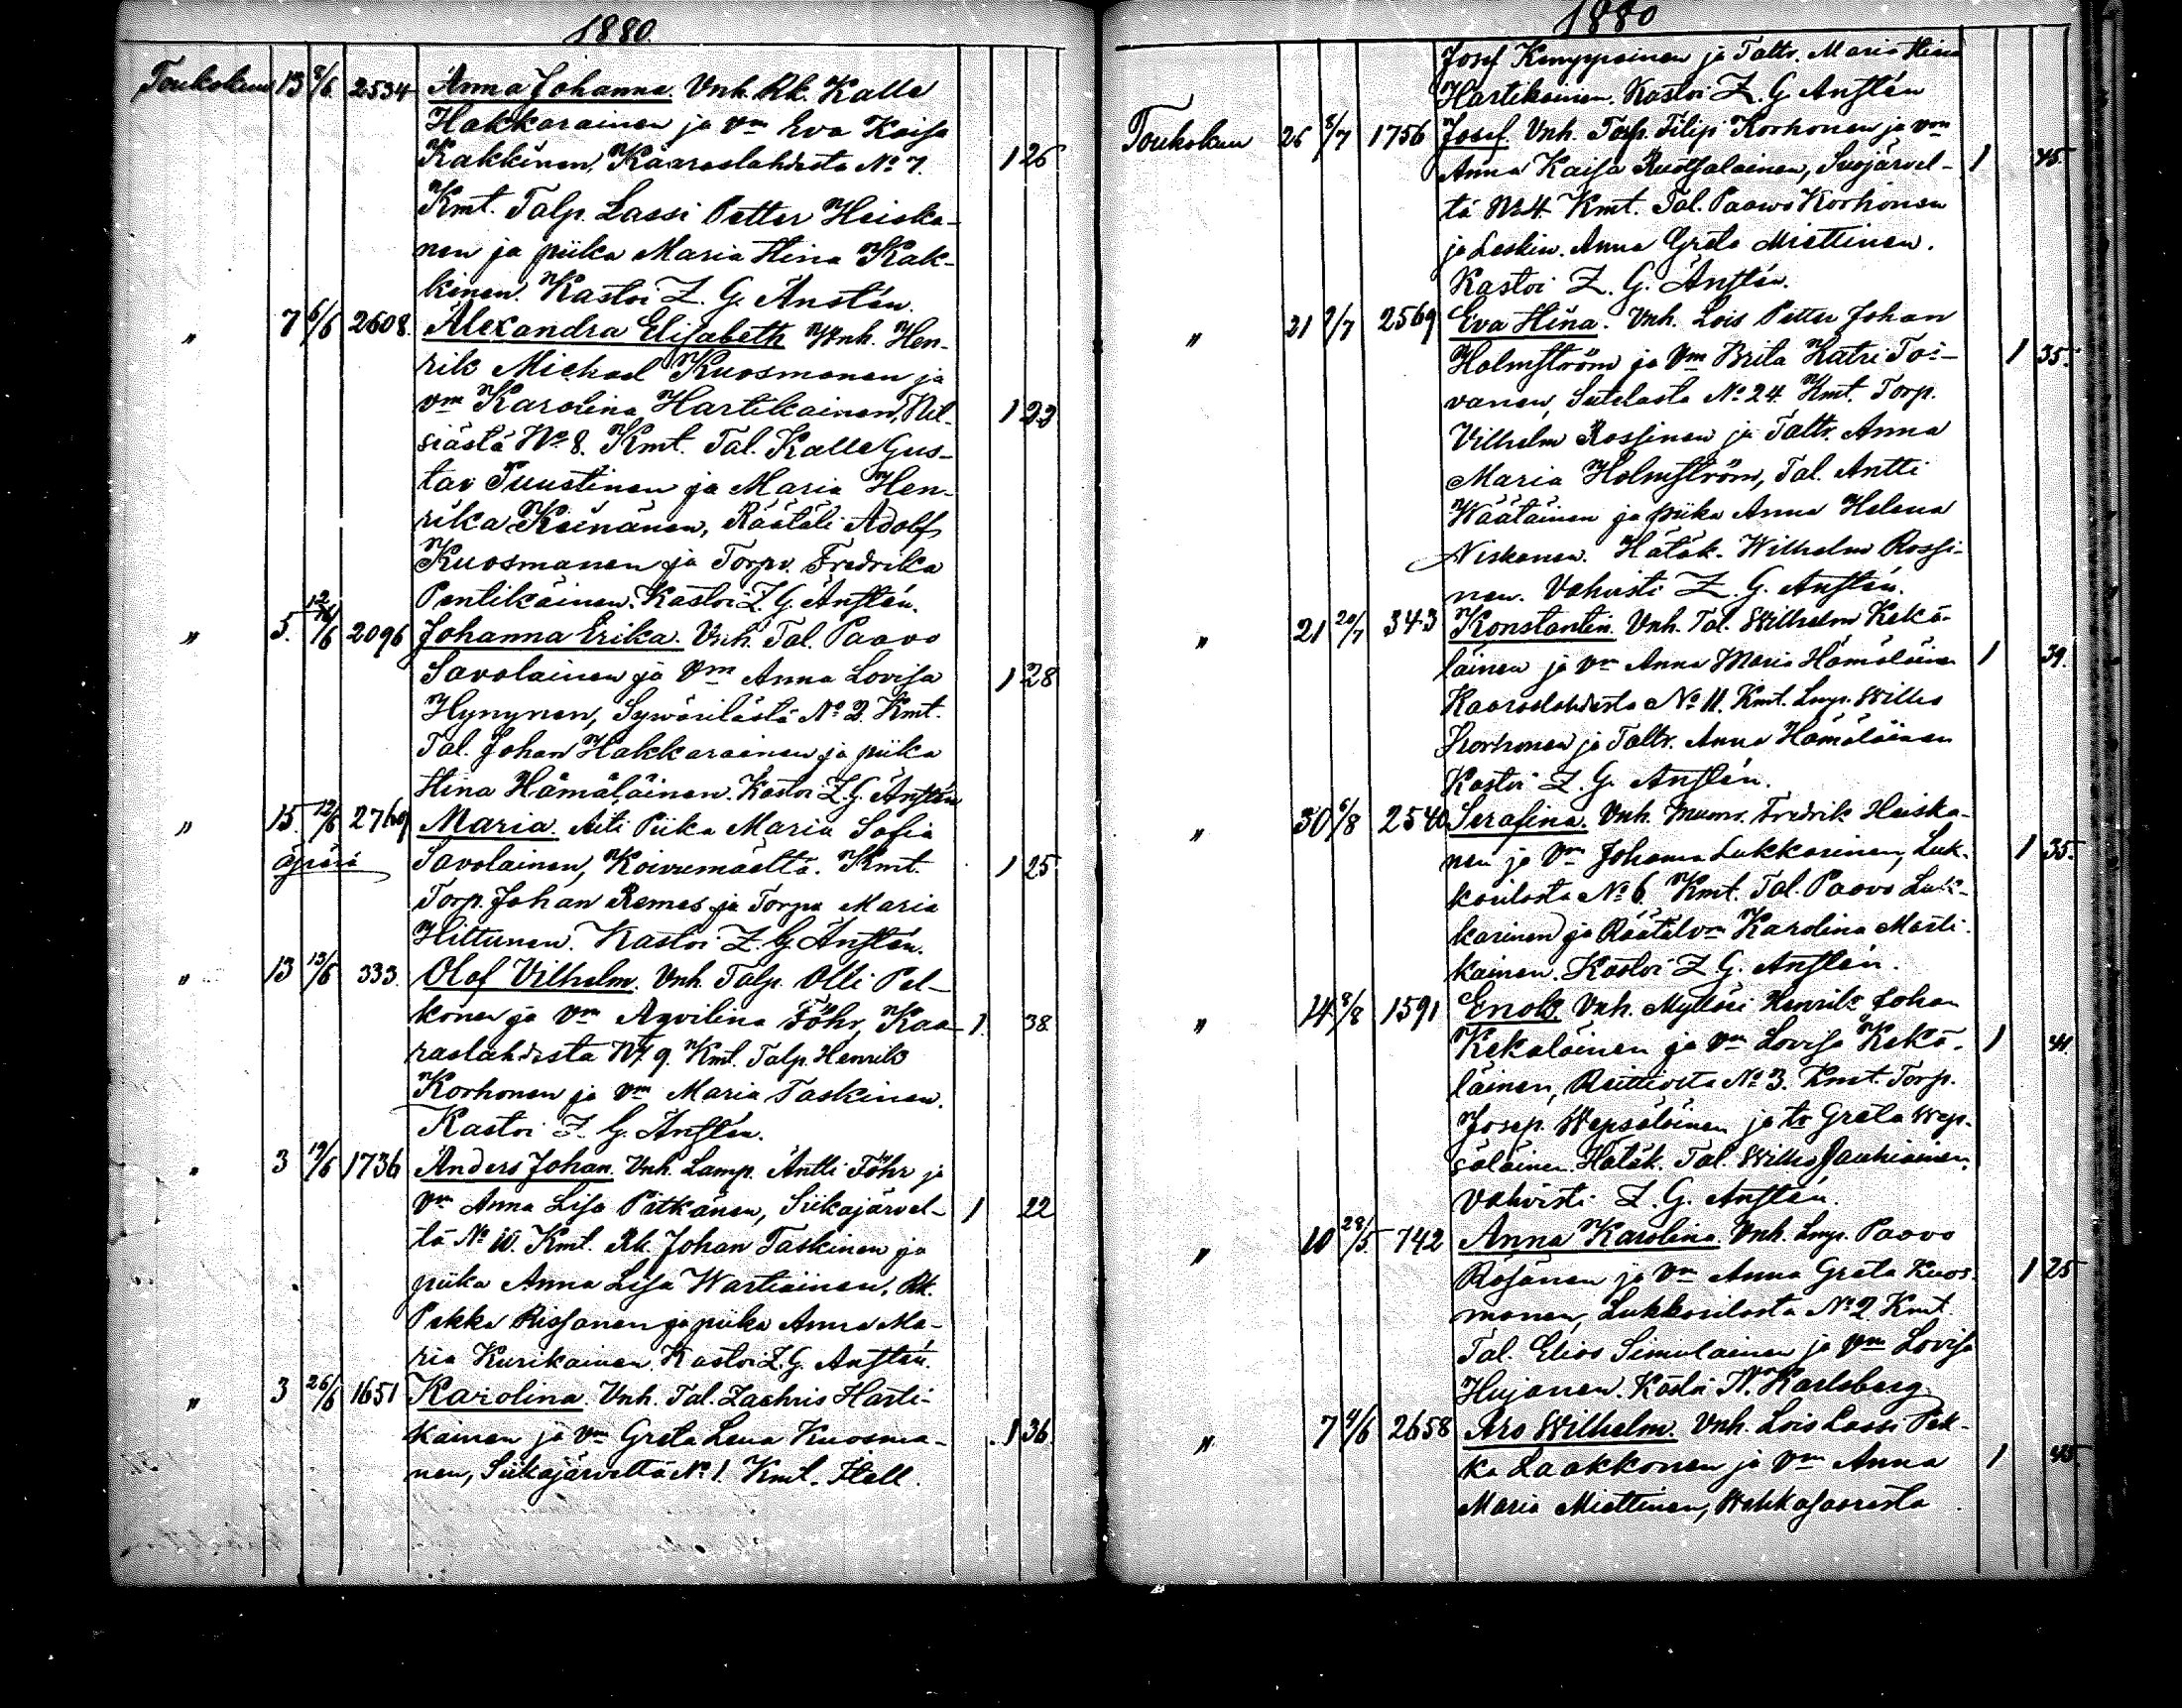 1880.
Toukokuu 13 8/6 2534 Anna Johanna. Vnh. Rk. Kalle
Hakkarainen ja Vm Eva Kaisa
Kakkinen, Kaaraslahdesta No 7. 1 26
Kmt. Talp. Lassi Petter Heiska-
nen ja piika Maria Hina Kak-
kinen. Kastoi Z. G. Ansten.
" 7 6/6 2608. Alexandra Elisabeth Vnh. Hen-
rik Michael Kuosmanen ja
vm Karolina Hartikainen, Nil- 1 23
siästä No 8. Kmt. Tal. Kalle Gus-
tav Tuustinen ja Maria Hen-
rika Keinänen, Räätäli Adolf
Kuosmanen ja Torpv. Fredrika
Pentikäinen. Kastoi Z. G. Anstén.
" 5. 12/6 2096 Johanna Erika. Vnh. Tal. Paavo
Savolainen ja Vm Anna Lovisa 1 28
Hynynen, Sywärilästä No 2. Kmt.
Tal. Johan Hakkarainen ja piika
Hina Hämäläinen. Kastoi Z. G. Anstén
" 15. 12/6 2769 Maria. Aiti Piika Maria Sofia
äpärä Savolainen, Koivumäeltä. Kmt. 1 25
Torp. Johan Remes ja Torpv Maria
Hiltunen. Kastoi Z. G. Anstén.
" 13 13/6 333. Olof Vilhelm. Vnh. Talp. Olli Pel-
konen ja Vm Aqvilina Föhr, Kaa- 1. 38
raslahdesta No 9. Kmt. Talp. Henrik
Korhonen ja Vm Maria Taskinen.
Kastoi Z. G. Anstén.
" 3 19/6 1736 Anders Johan. Vnh. Lamp. Antti Föhr ja
Vm Anna Lisa Pitkänen, Siikajärvel- 1 22
tä No 10. Kmt. Rk. Johan Taskinen ja
piika Anna Lisa Wartiainen, Rk.
Pekka Rissanen ja piika Anna Ma-
ria Kurikainen. Kastoi Z. G. Anstén.
" 3 26/6 1651 Karolina. Vnh. Tal. Zachris Harti-
kainen ja Vm Greta Lena Kuosma- 1 36.
nen, Siikajärveltä No 1. Kmt. Itall.
1880
Josef Kemppainen ja Taltr. Maria Hina
Hartikainen. Kastoi Z. G. Anstén
Toukokuu 26 8/7 1756 Josef. Vnh. Talp. Filip Korhonen ja vm
Anna Kaisa Ruotsalainen, Suojärvel- 1 45.
tä No 4. Kmt. Tal. Paawo Korhonen
ja Leskiv. Anna Greta Miettinen.
Kastoi Z. G. Anstén.
" 21 9/7 2569 Eva Hina. Vnh. Lois Petter Johan
Holmström ja Vm Brita Katri Toi- 1 35.
vanen, Sutelasta No 24. Kmt. Torp.
Vilhelm Rossinen ja Taltr. Anna
Maria Holmström, Tal. Antti
Wäätäinen ja piika Anna Helena
Niskanen. Hätäk. Wilhelm Rossi-
nen. Vahvisti Z. G. Anstén.
" 21 20/7 343 Konstantin. Vnh. Tal. Wilhelm Kekä-
läinen ja vm Anna Maria Hämäläinen 1 39.
Kaaraslahdesta No 11. Kmt. Lmp. Wilho
Korhonen ja Taltr. Anna Hämäläinen
Kastoi Z. G. Anstén.
" 30 6/8 2540 Serafina. Vnh. Muurr. Fredrik Heiska-
nen ja Vm Johanna Lukkarinen, Luk- 1 35.
karilasta No 6. Kmt. Tal. Paavo Luk-
karinen ja Räätälvm Karolina Marti-
kainen. Kastoi Z. G. Anstén.
" 14 8/8 1591 Enok. Vnh. Mylläri Henrik Johan
Kekäläinen ja vm Lovisa Kekä- 1 41.
läinen, Reittiosta No 3. Kmt. Torp.
Josep. Wepsäläinen ja tv Greta Wep-
säläinen. Hätäk. Tal. Wilho Jauhiainen.
Vahvisti Z. G. Anstén.
" 10 28/5. 742 Anna Karolina. Vnh. Lmp. Paavo
Räsänen ja Vm Anna Greta Kuos- 1 25
manen, Lukkarilasta No 2. Kmt.
Tal. Elias Simulainen ja Vm Lovisa
Hujanen. Kastoi N. Karlsberg.
" 7 4/6 2658 Aro Wilhelm. Vnh. Lois Lassi Pek-
ka Laakkonen ja Vm Anna 1 45.
Maria Miettinen, Wehkasaaresta